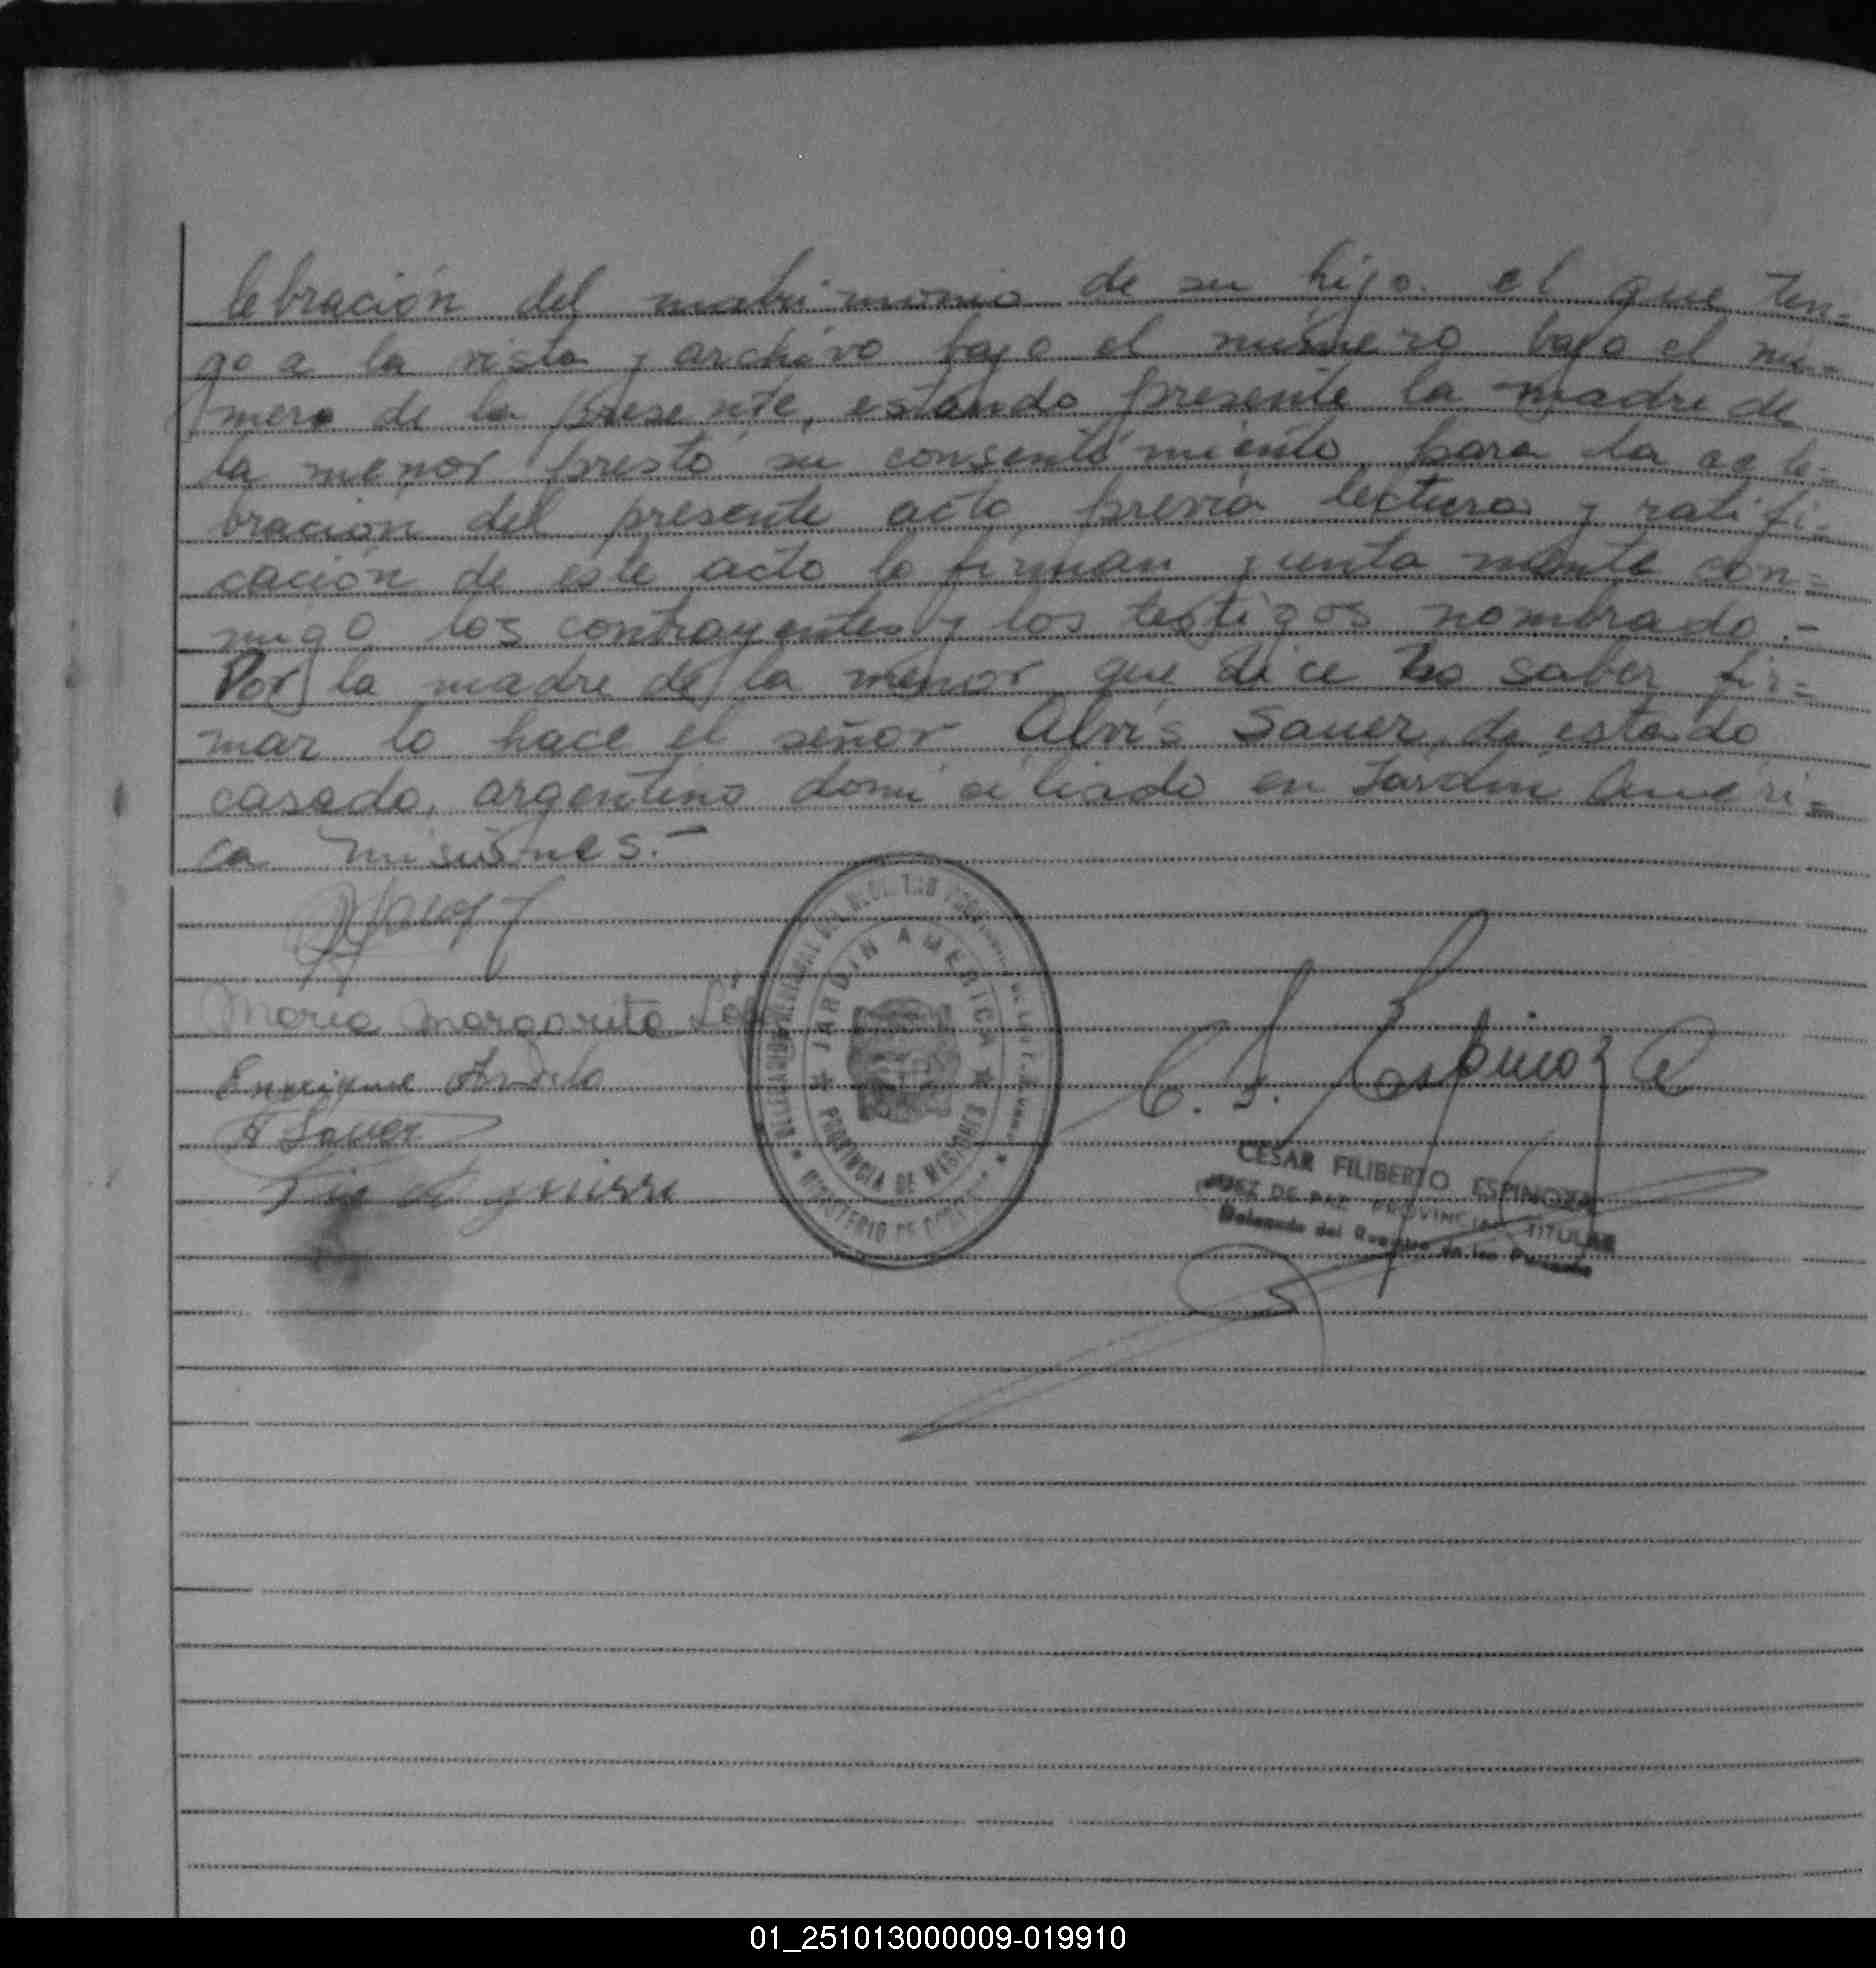 lebración del matrimonio de su hijo. el que ten-
go a la vista y archivo bajo el número bajo el nú-
mero de la presente, estando presente la madre de
la menor prestó su consentimiento para la cele-
bración del presente acto, previa lectura y ratifi-
cación de este acto lo firman juntamente con-
migo los contrayentes y los testigos nombrado.-
Por la madre de la menor que dice no saber fir-
mar lo hace el señor Alvis Sauer, de estado
casado, argentino domiciliado en Jardin Améri-
ca Misiones.-
Maria Margarita
Enrique
A Sauer
JARDIN AMERICA
PROVINCIA DE MISIONES
C. F. Espinoza
CESAR FILIBERTO ESPINOZA
JUEZ DE PAZ PROVINCIAL TITULAR
Delegado del Registro de las Personas
01_251013000009-019910